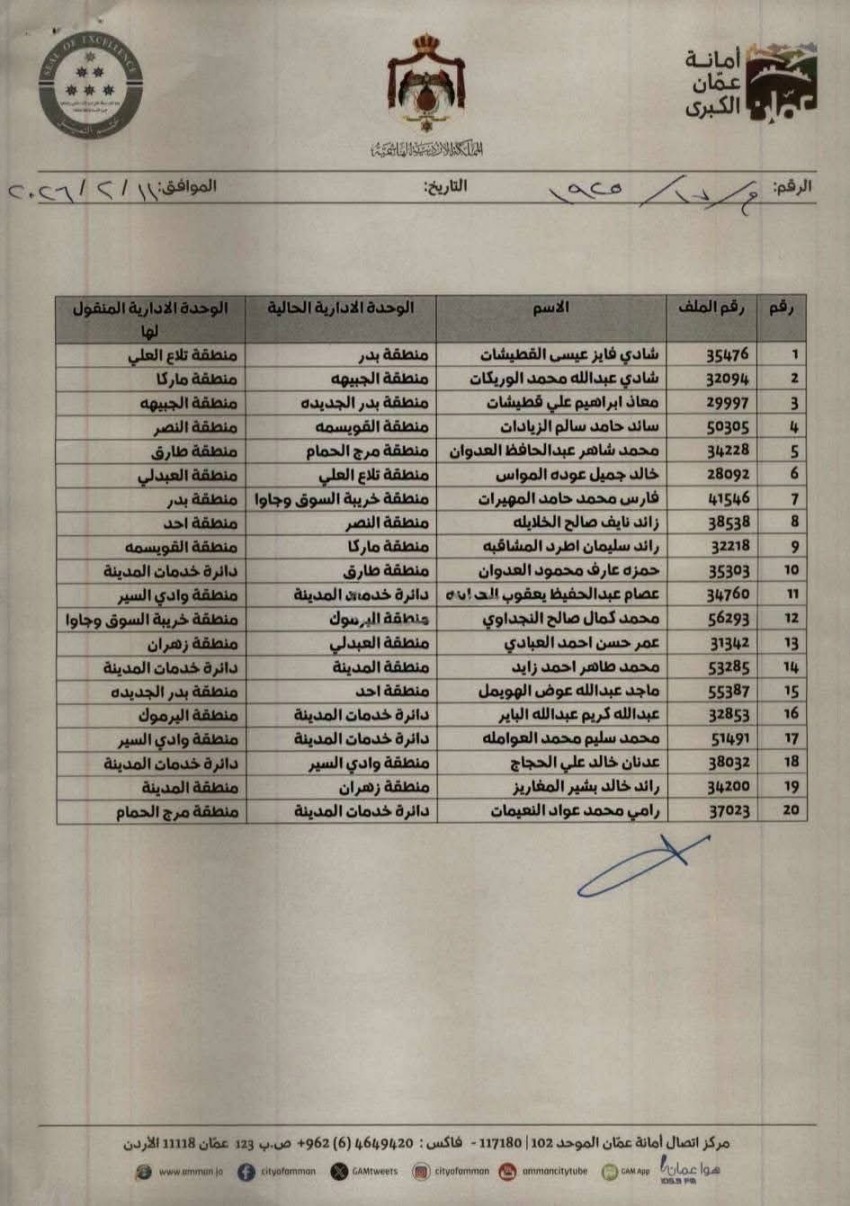 SEAL OF EXCELLENCE
ختم التميز
المملكة الاردنية الهاشمية
أمانة
عمّان
الكبرى
عمّان
الرقم: م/١٦/١٩٢٥ التاريخ: الموافق: ١١/٢/٢٠٢٦
رقم رقم الملف الاسم الوحدة الادارية الحالية الوحدة الادارية المنقول لها
1 35476 شادي فايز عيسى القطيشات منطقة بدر منطقة تلاع العلي
2 32094 شادي عبدالله محمد الوريكات منطقة الجبيهه منطقة ماركا
3 29997 معاذ ابراهيم علي قطيشات منطقة بدر الجديده منطقة الجبيهه
4 50305 سائد حامد سالم الزيادات منطقة القويسمه منطقة النصر
5 34228 محمد شاهر عبدالحافظ العدوان منطقة مرج الحمام منطقة طارق
6 28092 خالد جميل عوده المواس منطقة تلاع العلي منطقة العبدلي
7 41546 فارس محمد حامد المهيرات منطقة خريبة السوق وجاوا منطقة بدر
8 38538 زائد نايف صالح الخلايله منطقة النصر منطقة احد
9 32218 رائد سليمان اطرد المشاقبه منطقة ماركا منطقة القويسمه
10 35303 حمزه عارف محمود العدوان منطقة طارق دائرة خدمات المدينة
11 34760 عصام عبدالحفيظ يعقوب دائرة خدمات المدينة منطقة وادي السير
12 56293 محمد كمال صالح النجداوي منطقة اليرموك منطقة خريبة السوق وجاوا
13 31342 عمر حسن احمد العبادي منطقة العبدلي منطقة زهران
14 53285 محمد طاهر احمد زايد منطقة المدينة دائرة خدمات المدينة
15 55387 ماجد عبدالله عوض الهويمل منطقة احد منطقة بدر الجديده
16 32853 عبدالله كريم عبدالله الباير دائرة خدمات المدينة منطقة اليرموك
17 51491 محمد سليم محمد العوامله دائرة خدمات المدينة منطقة وادي السير
18 38032 عدنان خالد علي الحجاج منطقة وادي السير دائرة خدمات المدينة
19 34200 رائد خالد بشير المغاريز منطقة زهران منطقة المدينة
20 37023 رامي محمد عواد النعيمات دائرة خدمات المدينة منطقة مرج الحمام
مركز اتصال أمانة عمّان الموحد 102 | 117180 - فاكس : 4649420 (6) 962+ ص.ب 123 عمّان 11118 الأردن
www.amman.jo cityofamman GAMtweets cityofamman ammancitytube GAM App هوا عمان 105.9 FM